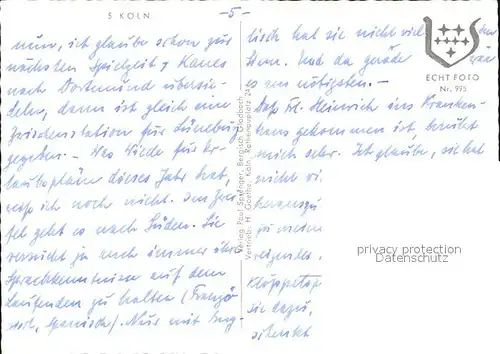 5 KÖLN
-5-
nun, ich glaube schon zur
nächsten Spielzeit, Klaus
nach Dortmund übersie-
deln, dann ist gleich eine
Zwischenstation für Lüneburg
gegeben. – Was Wiede für Ur-
laubspläne dieses Jahr hat,
weiß ich noch nicht. Im
geht es nach Süden. Sie
versucht ja auch immer ihre
Sprachkenntnisse auf dem
Laufenden zu halten (Franzö-
sisch, Spanisch). Nur mit Eng-
lisch hat sie nicht viel
Und da gerade
es am nötigsten. –
Daß Frl. Heinrich ins Kranken-
haus gekommen ist, berührt
mich sehr. Ich glaube, sie hat
nicht
herauszu
zu meiner
sie dazu,
ECHT FOTO
Nr. 995
Verlag: Paul Spenger, Bergisch Gladbach
Vertrieb: H. Goethe, Köln, Rathenauplatz 24
privacy protection
Datenschutz